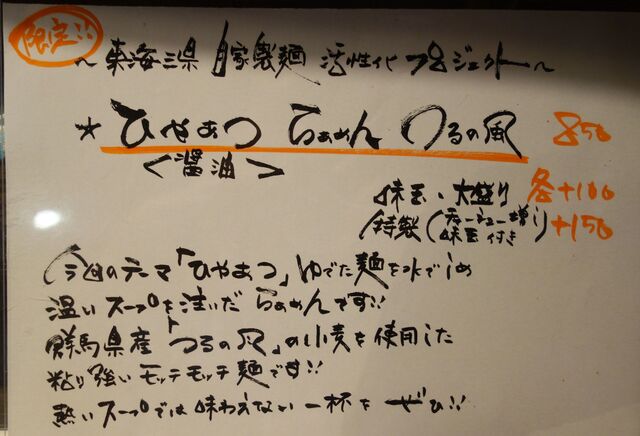 限定!!
～東海三県 自家製麺 活性化プロジェクト～
★ひやあつ らぁめん つるの風 850
＜醤油＞
味玉・大盛り 各+100
特製(チャーシュー増し 味玉付き)+150
今回のテーマ「ひやあつ」ゆでた麺を水でしめ
温いスープを注いだらぁめんです!!
群馬県産「つるの風」の小麦を使用した
粘り強いモッチモッチ麺です!!
熱いスープでは味わえない一杯をぜひ!!